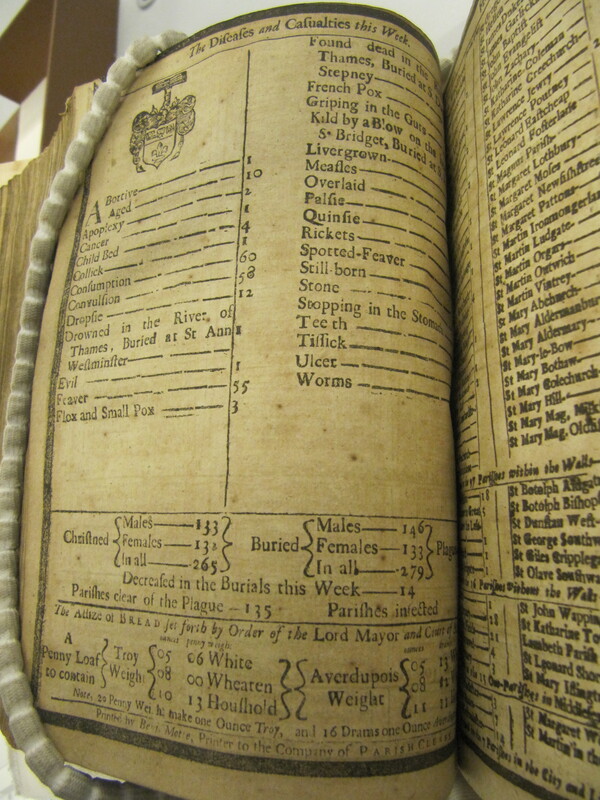 The Diseases and Casualties this Week.
Abortive 1
Aged 10
Apoplexy 2
Cancer 1
Child Bed 4
Collick 1
Consumption 60
Convulsion 58
Dropsie 12
Drowned in the River of
Thames, Buried at St Ann 1
Westminster
Evil 1
Feaver 55
Flox and Small Pox 3
Found dead in the
Thames, Buried at
Stepney
French Pox
Griping in the Guts
Kild by a Blow on the
St Bridget, Buried at
Livergrown
Measles
Overlaid
Palsie
Quinsie
Rickets
Spotted-Feaver
Still-born
Stone
Stopping in the Stomach
Teeth
Tissick
Ulcer
Worms
Christned Males 133
Females 132
In all 265
Buried Males 146
Females 133
In all 279
Plague
Decreased in the Burials this Week 14
Parishes clear of the Plague 135 Parishes infected
The Assize of BREAD set forth by Order of the Lord Mayor and Court of
A
Penny Loaf
to contain
Troy
Weight
05 06 White
08 00 Wheaten
10 13 Houshold
Averdupois
Weight
05 13
08 12
11
Note, 20 Penny Weight make one Ounce Troy, and 16 Drams one Ounce
Printed by Benj. Motte, Printer to the Company of PARISH CLERKS
St Katharine Coleman
St Lawrence Jewry
St Lawrence Pountney
St Leonard Eastcheap
St Leonard Fosterlane
St Magnus Parish
St Margaret Lothbury
St Margaret Moses
St Margaret Newfishstreet
St Margaret Pattons
St Martin Ironmongerlane
St Martin Ludgate
St Martin Orgars
St Martin Outwich
St Martin Vintrey
St Mary Abchurch
St Mary Aldermanbury
St Mary Aldermary
St Mary-le-Bow
St Mary Bothaw
St Mary Colechurch
St Mary Hill
St Mary Mag, Milk
St Mary Mag. Oldfish
97 Parishes within the Walls
St Botolph Aldgate
St Botolph Bishop
St Dunstan West
St George Southw
St Giles Cripplegate
St Olave Southwa
16 Parishes without the Walls
St John Wapping
St Katharine To
Lambeth Parish
St Leonard Shor
St Mary Islington
Out-Parishes in Middlesex
St Margaret W
St Martin in the
Parishes in the City and L